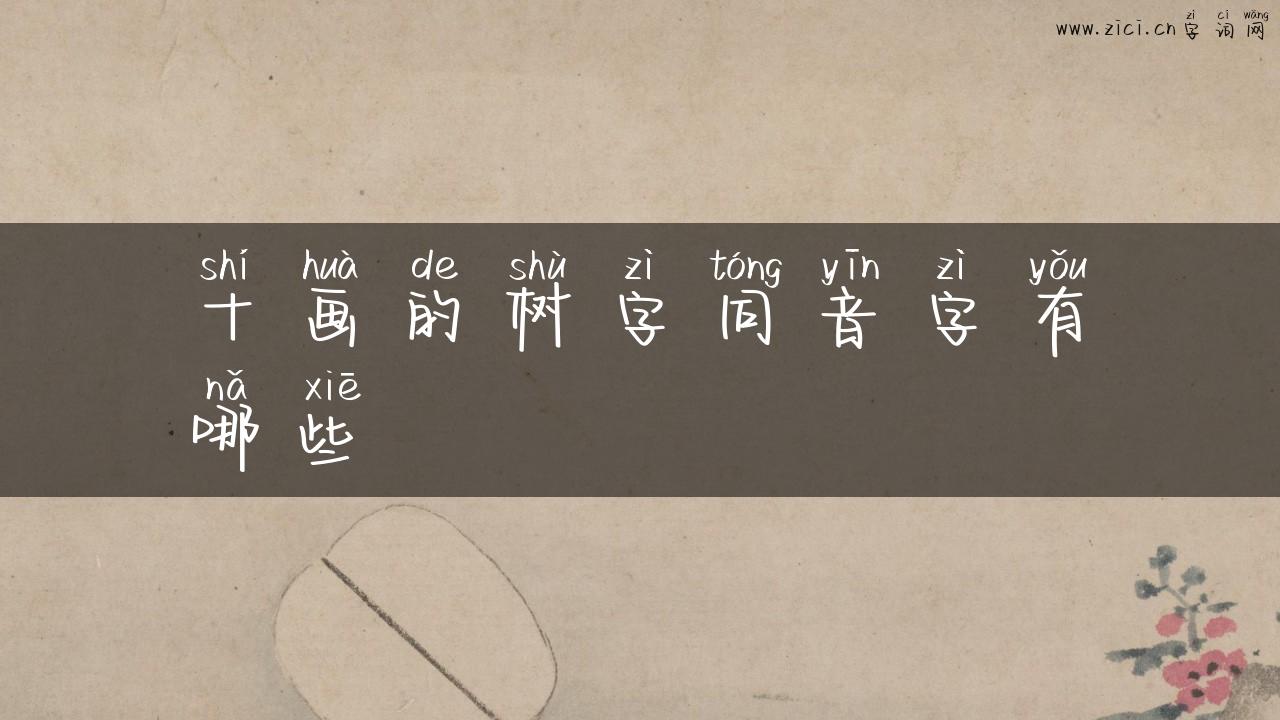 zì cí wǎng
www.zici.cn字词网
shí huà de shù zì tóng yīn zì yǒu
十画的树字同音字有
nǎ xiē
哪些